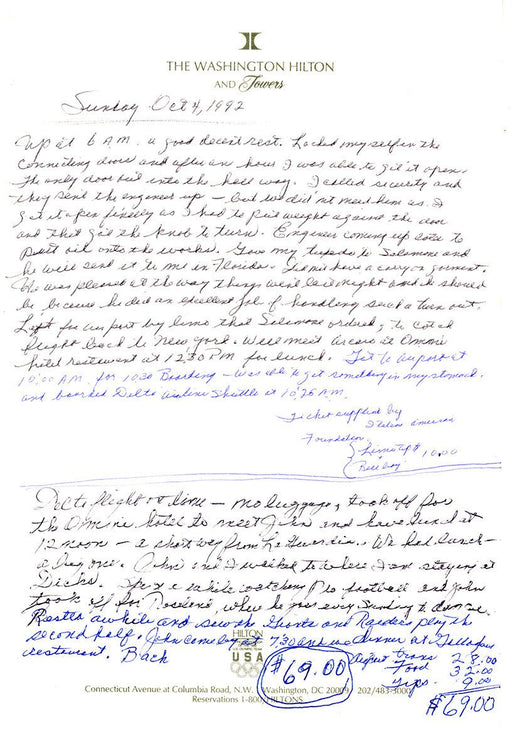 THE WASHINGTON HILTON
AND Towers
Sunday Oct 4, 1992
Up at 6 A.M. a good decent rest. Locked myself in the
connecting door and after an hour I was able to get it open.
The only door out into the hall way. I called security and
they sent the engineer up — but we did not need him as I
got it open finally as I had to put weight against the door
and that got the knob to turn. Engineer coming up later to
put oil onto the works. Gave my tuxedo to Solomone and
he will send it to me in Florida. I did not have a carry on garment.
He was pleased at the way things went last night and it should
be because he did an excellent job of handling such a turn out.
Left for airport by limo that Solomone ordered, to catch
flight back to New York. Will meet at Omni
hotel restaurant at 12:30 PM for lunch. Got to airport at
10:00 A.M. for 1030 Boarding — was able to get something in my stomach.
and boarded Delta airline Shuttle at 10:25 AM.
Ticket supplied by
Italian American
Foundation.
Limo tip $
Bell boy 10.00
Delta flight on time — no luggage, took off for
the Omni hotel to meet John and have lunch at
12 noon — a short way from La Guardia. We had lunch —
a long one. John and I walked to where I am staying at
Dick's. Spent a while watching Pro football and John
took off for Roseland, where he goes every Sunday to dance.
Rested awhile and saw the Giants and Raiders play the
second half. John came by at 7:30 and we dinner at
restaurant. Back
Airport trans 28.00
Food 32.00
Tips 9.00
$69.00
$69.00
HILTON
USA
Connecticut Avenue at Columbia Road, N.W. Washington, DC 20009 202/483-3000
Reservations 1-800-HILTONS